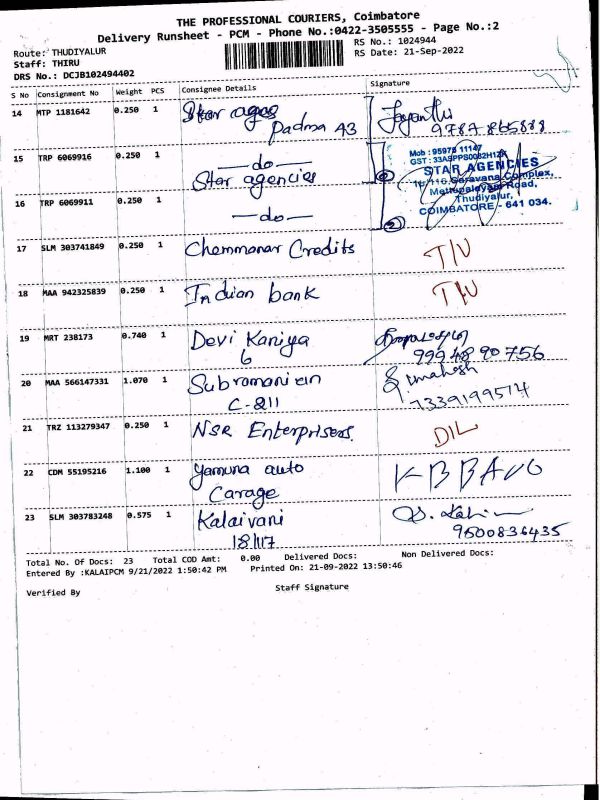 THE PROFESSIONAL COURIERS, Coimbatore
Delivery Runsheet - PCM - Phone No.:0422-3505555 - Page No.:2
Route: THUDIYALUR
RS No.: 1024944
Staff: THIRU
RS Date: 21-Sep-2022
DRS No.: DCJB102494402
S No Consignment No Weight PCS Consignee Details Signature
14 MTP 1181642 0.250 1 Star ages
Padma 43 Jayanthi
9787865888
15 TRP 6069916 0.250 1 —do—
Star agencies
Mob : 95978 11147
STAR AGENCIES
Mettupalayam Road,
Thudiyalur,
COIMBATORE - 641 034.
16 TRP 6069911 0.250 1 —do—
17 SLM 303741849 0.250 1 Chemmanar Credits T/U
18 MAA 942325839 0.250 1 Indian bank T/U
19 MRT 238173 0.740 1 Devi Kaniya
6 9994890756
20 MAA 566147331 1.070 1 Subramanian
C-211 umahesh
7339199574
21 TRZ 113279347 0.250 1 NSR Enterprisers D/L
22 CDM 55195216 1.100 1 Yamuna auto
Carage
23 SLM 303783248 0.575 1 Kalaivani
18/117 9500836435
Total No. Of Docs: 23 Total COD Amt: 0.00 Delivered Docs: Non Delivered Docs:
Entered By :KALAIPCM 9/21/2022 1:50:42 PM Printed On: 21-09-2022 13:50:46
Verified By Staff Signature